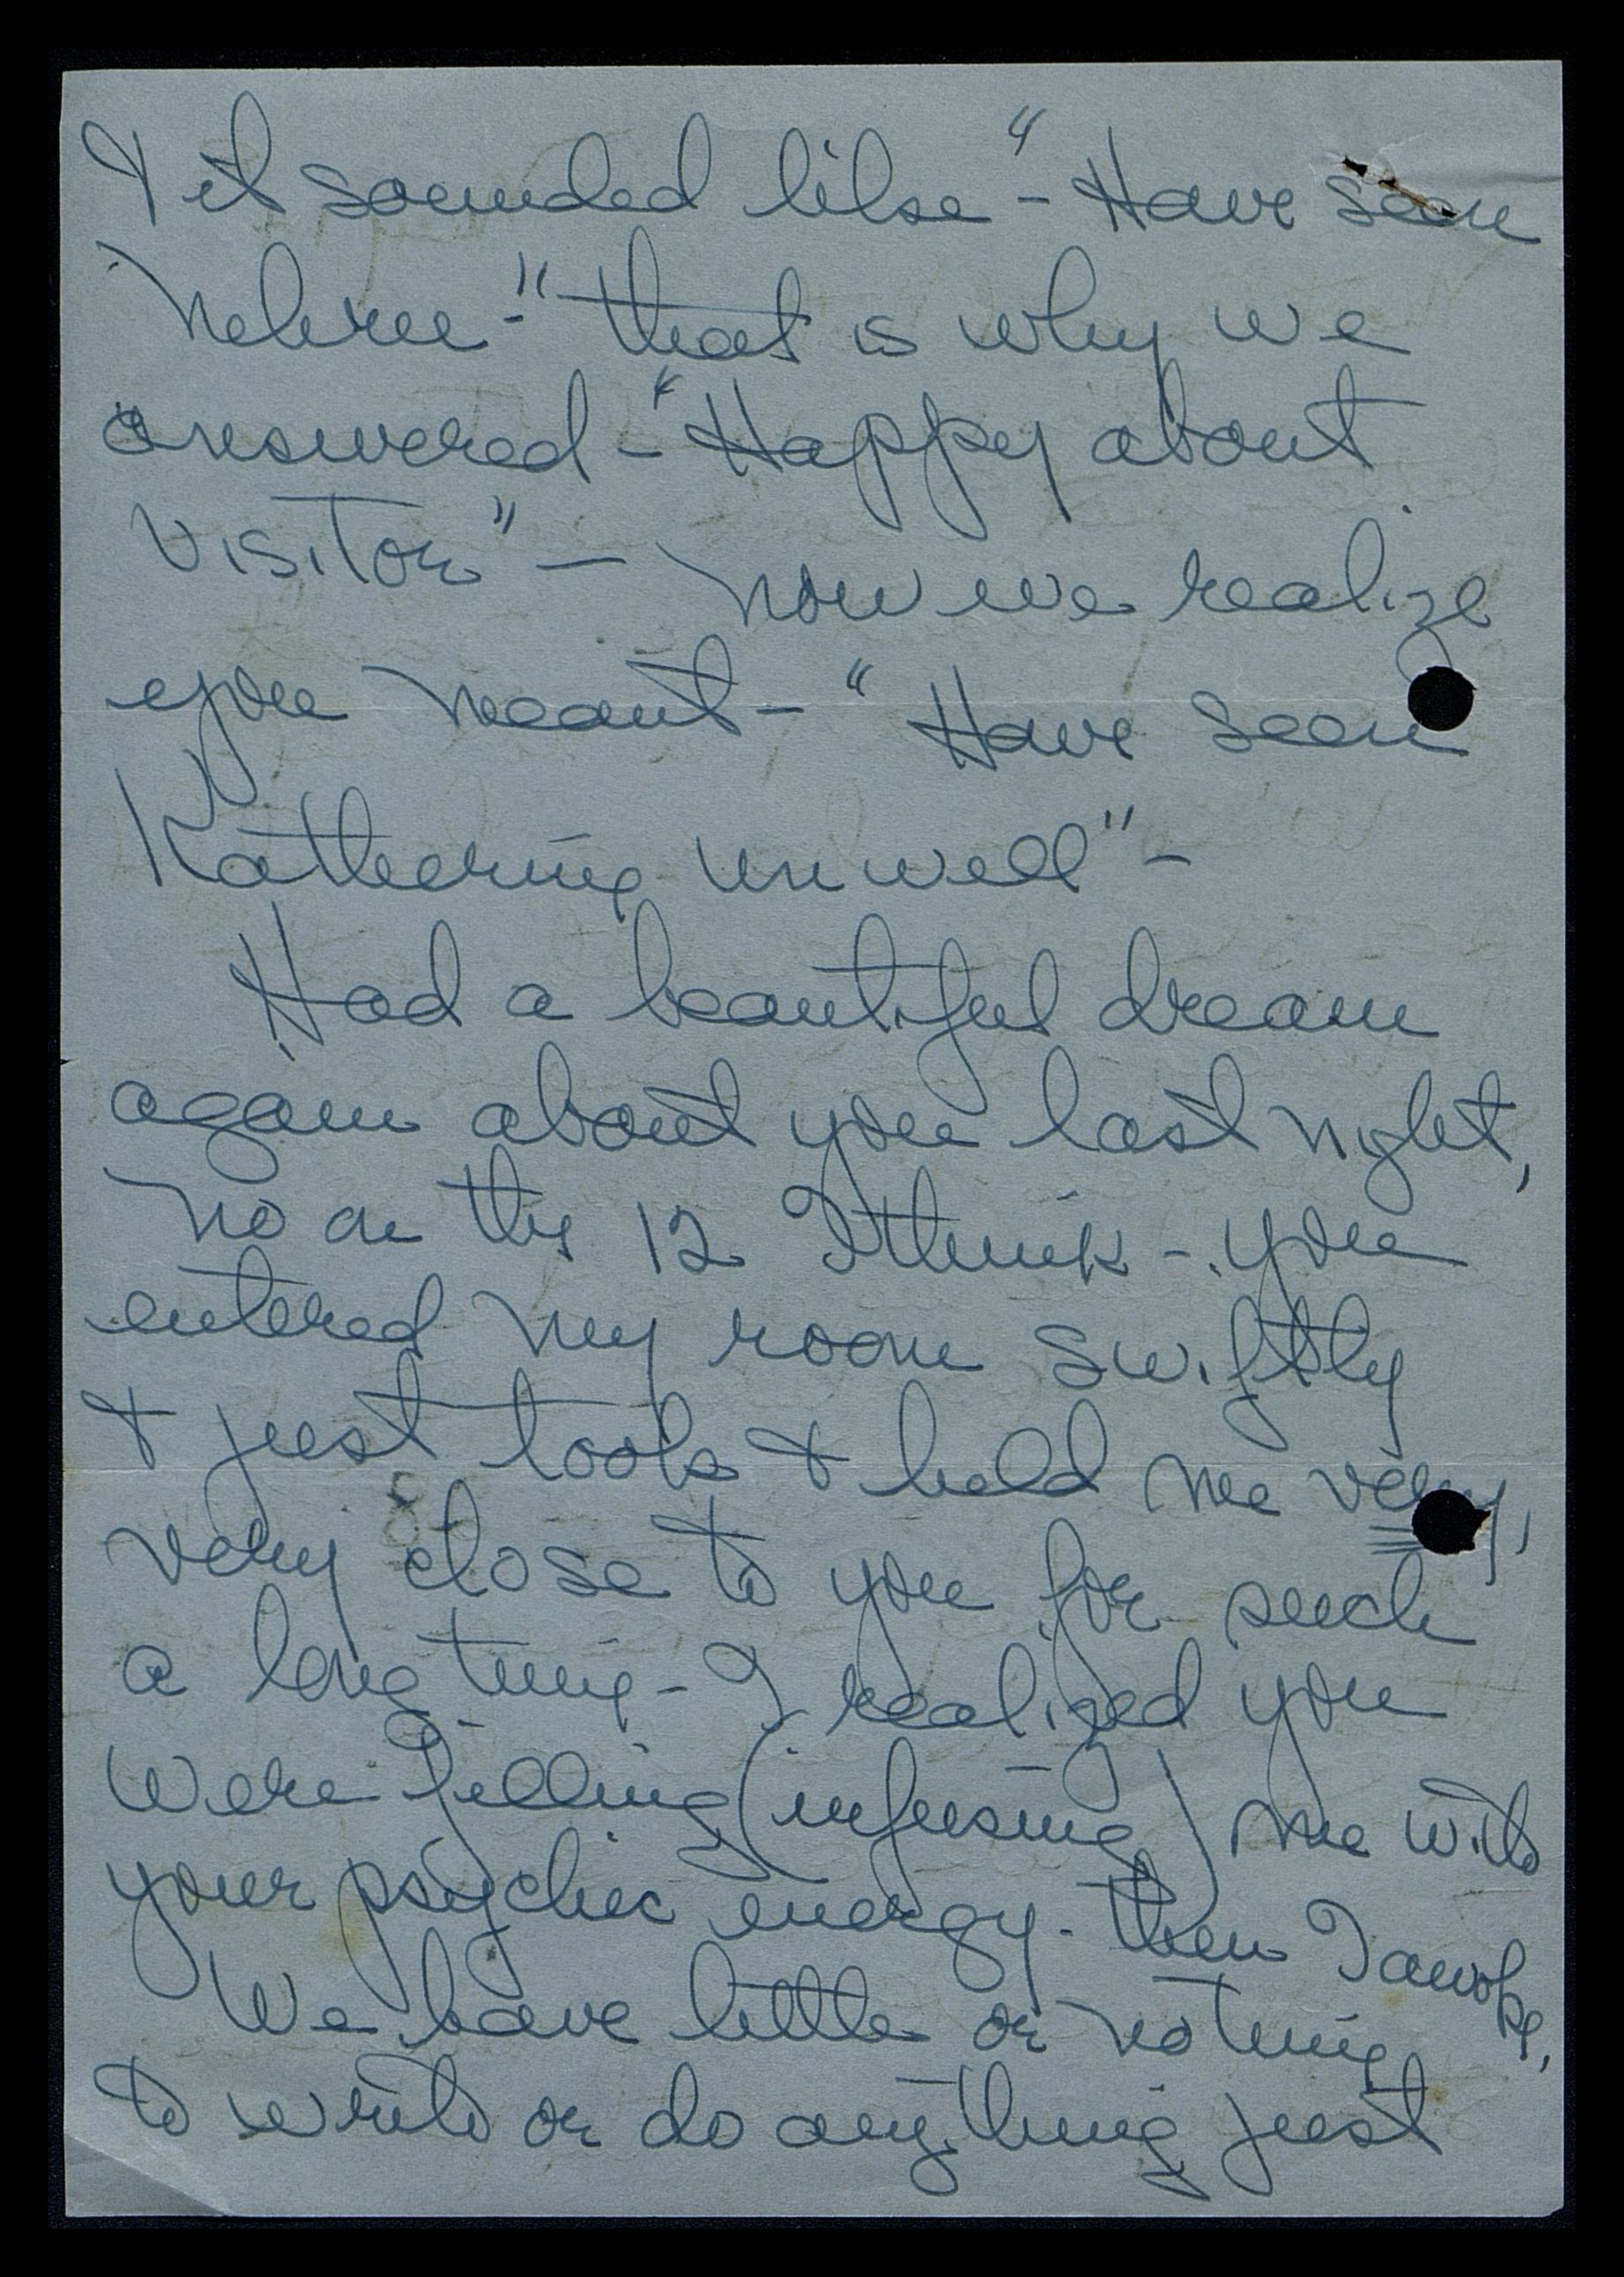 & it sounded like "- Have seen
Nehru -" that is why we
answered - "Happy about
visitor" — now we realize
you meant - "Have seen
Katherine unwell" -
Had a beautiful dream
again about you last night,
no on the 12 I think - you
entered my room swiftly
& just took & held me very,
very close to you for such
a long time - I realized you
were filling (infusing) me with
your psychic energy - then I awoke,
We have little or no time
to write or do anything just